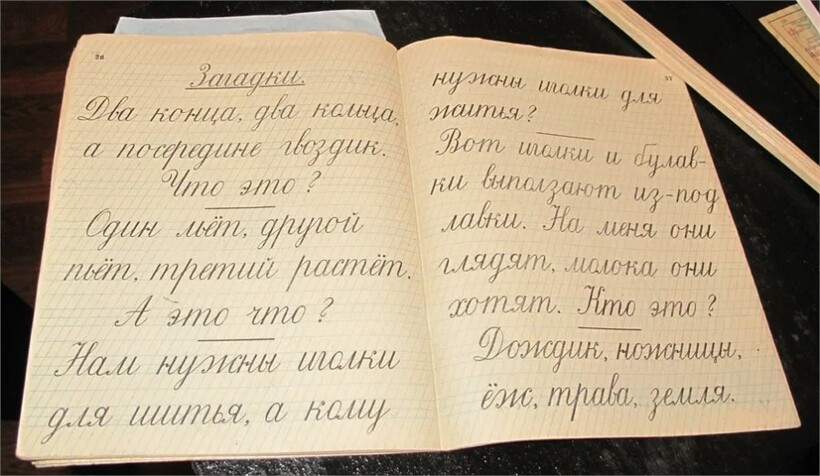 26
Загадки.
Два конца, два кольца,
а посередине гвоздик.
Что это?
Один льёт, другой
пьёт, третий растёт.
А это что?
Нам нужны иголки
для шитья, а кому
27
нужны иголки для
житья?
Вот иголки и булав-
ки выползают из-под
лавки. На меня они
глядят, молока они
хотят. Кто это?
Дождик, ножницы,
ёж, трава, земля.